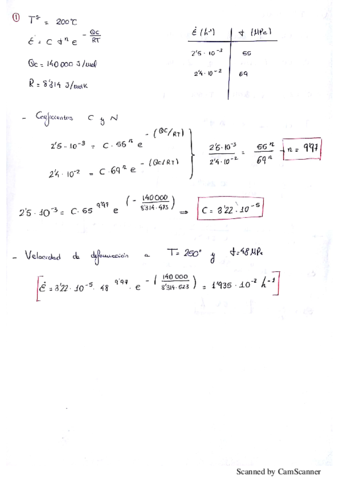 ① Tª = 200℃
ε̇ = C σⁿ e^(-Qc/RT)
Qc = 140 000 J/mol
R = 8'314 J/molK
ε̇ (h⁻¹) | σ (MPa)
2'5·10⁻³ | 55
2'4·10⁻² | 69
- Coeficientes C y N
2'5·10⁻³ = C·55ⁿ e^-(Qc/RT)
2'4·10⁻² = C·69ⁿ e^-(Qc/RT)
2'5·10⁻³ / 2'4·10⁻² = 55ⁿ / 69ⁿ → n = 9'97
2'5·10⁻³ = C·55^9'97 e^(-140000/8'314·473) ⇒ C = 3'22·10⁻⁵
- Velocidad de deformación a T = 250° y σ = 48 MPa
[ε̇ = 3'22·10⁻⁵ · 48^9'97 · e^-(140000/8'314·523) = 1'935·10⁻² h⁻¹]
Scanned by CamScanner